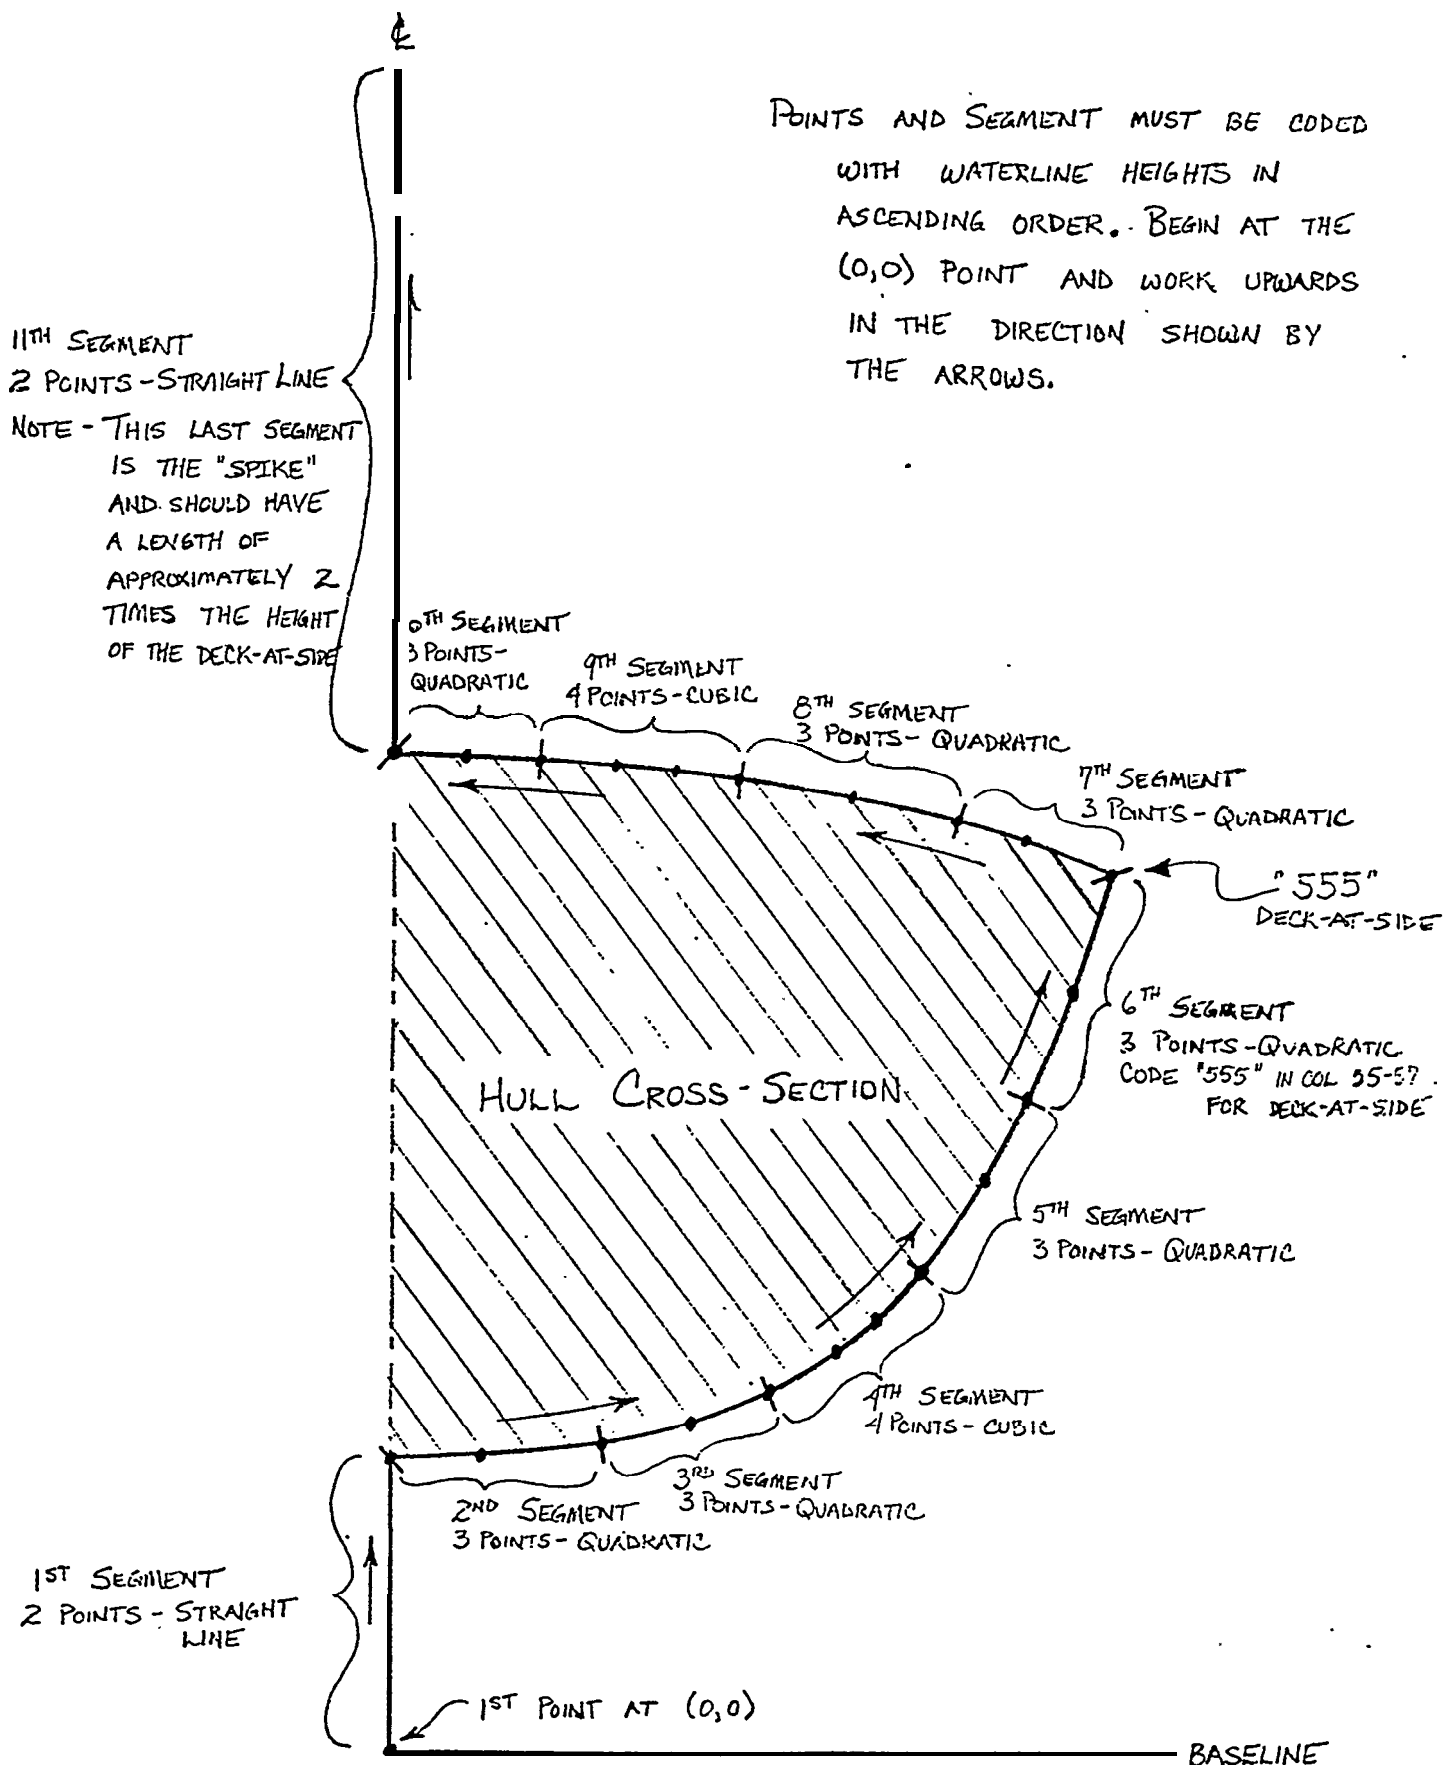 ℄
POINTS AND SEGMENT MUST BE CODED
WITH WATERLINE HEIGHTS IN
ASCENDING ORDER. BEGIN AT THE
(0,0) POINT AND WORK UPWARDS
IN THE DIRECTION SHOWN BY
THE ARROWS.
11TH SEGMENT
2 POINTS - STRAIGHT LINE
NOTE - THIS LAST SEGMENT
IS THE "SPIKE"
AND SHOULD HAVE
A LENGTH OF
APPROXIMATELY 2
TIMES THE HEIGHT
OF THE DECK-AT-SIDE
0TH SEGMENT
3 POINTS-
QUADRATIC
9TH SEGMENT
4 POINTS - CUBIC
8TH SEGMENT
3 POINTS - QUADRATIC
7TH SEGMENT
3 POINTS - QUADRATIC
"555"
DECK-AT-SIDE
6TH SEGMENT
3 POINTS - QUADRATIC
CODE "555" IN COL 55-57
FOR DECK-AT-SIDE
HULL CROSS-SECTION
5TH SEGMENT
3 POINTS - QUADRATIC
4TH SEGMENT
4 POINTS - CUBIC
3RD SEGMENT
3 POINTS - QUADRATIC
2ND SEGMENT
3 POINTS - QUADRATIC
1ST SEGMENT
2 POINTS - STRAIGHT
LINE
1ST POINT AT (0,0)
BASELINE